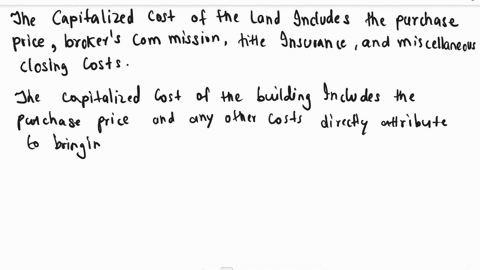 The Capitalized Cost of the Land Includes the purchase
price, broker's Commission, title Insurance, and miscellaneous
closing Costs.
The Capitalized Cost of the building Includes the
purchase price and any other Costs directly attribute
to bringin